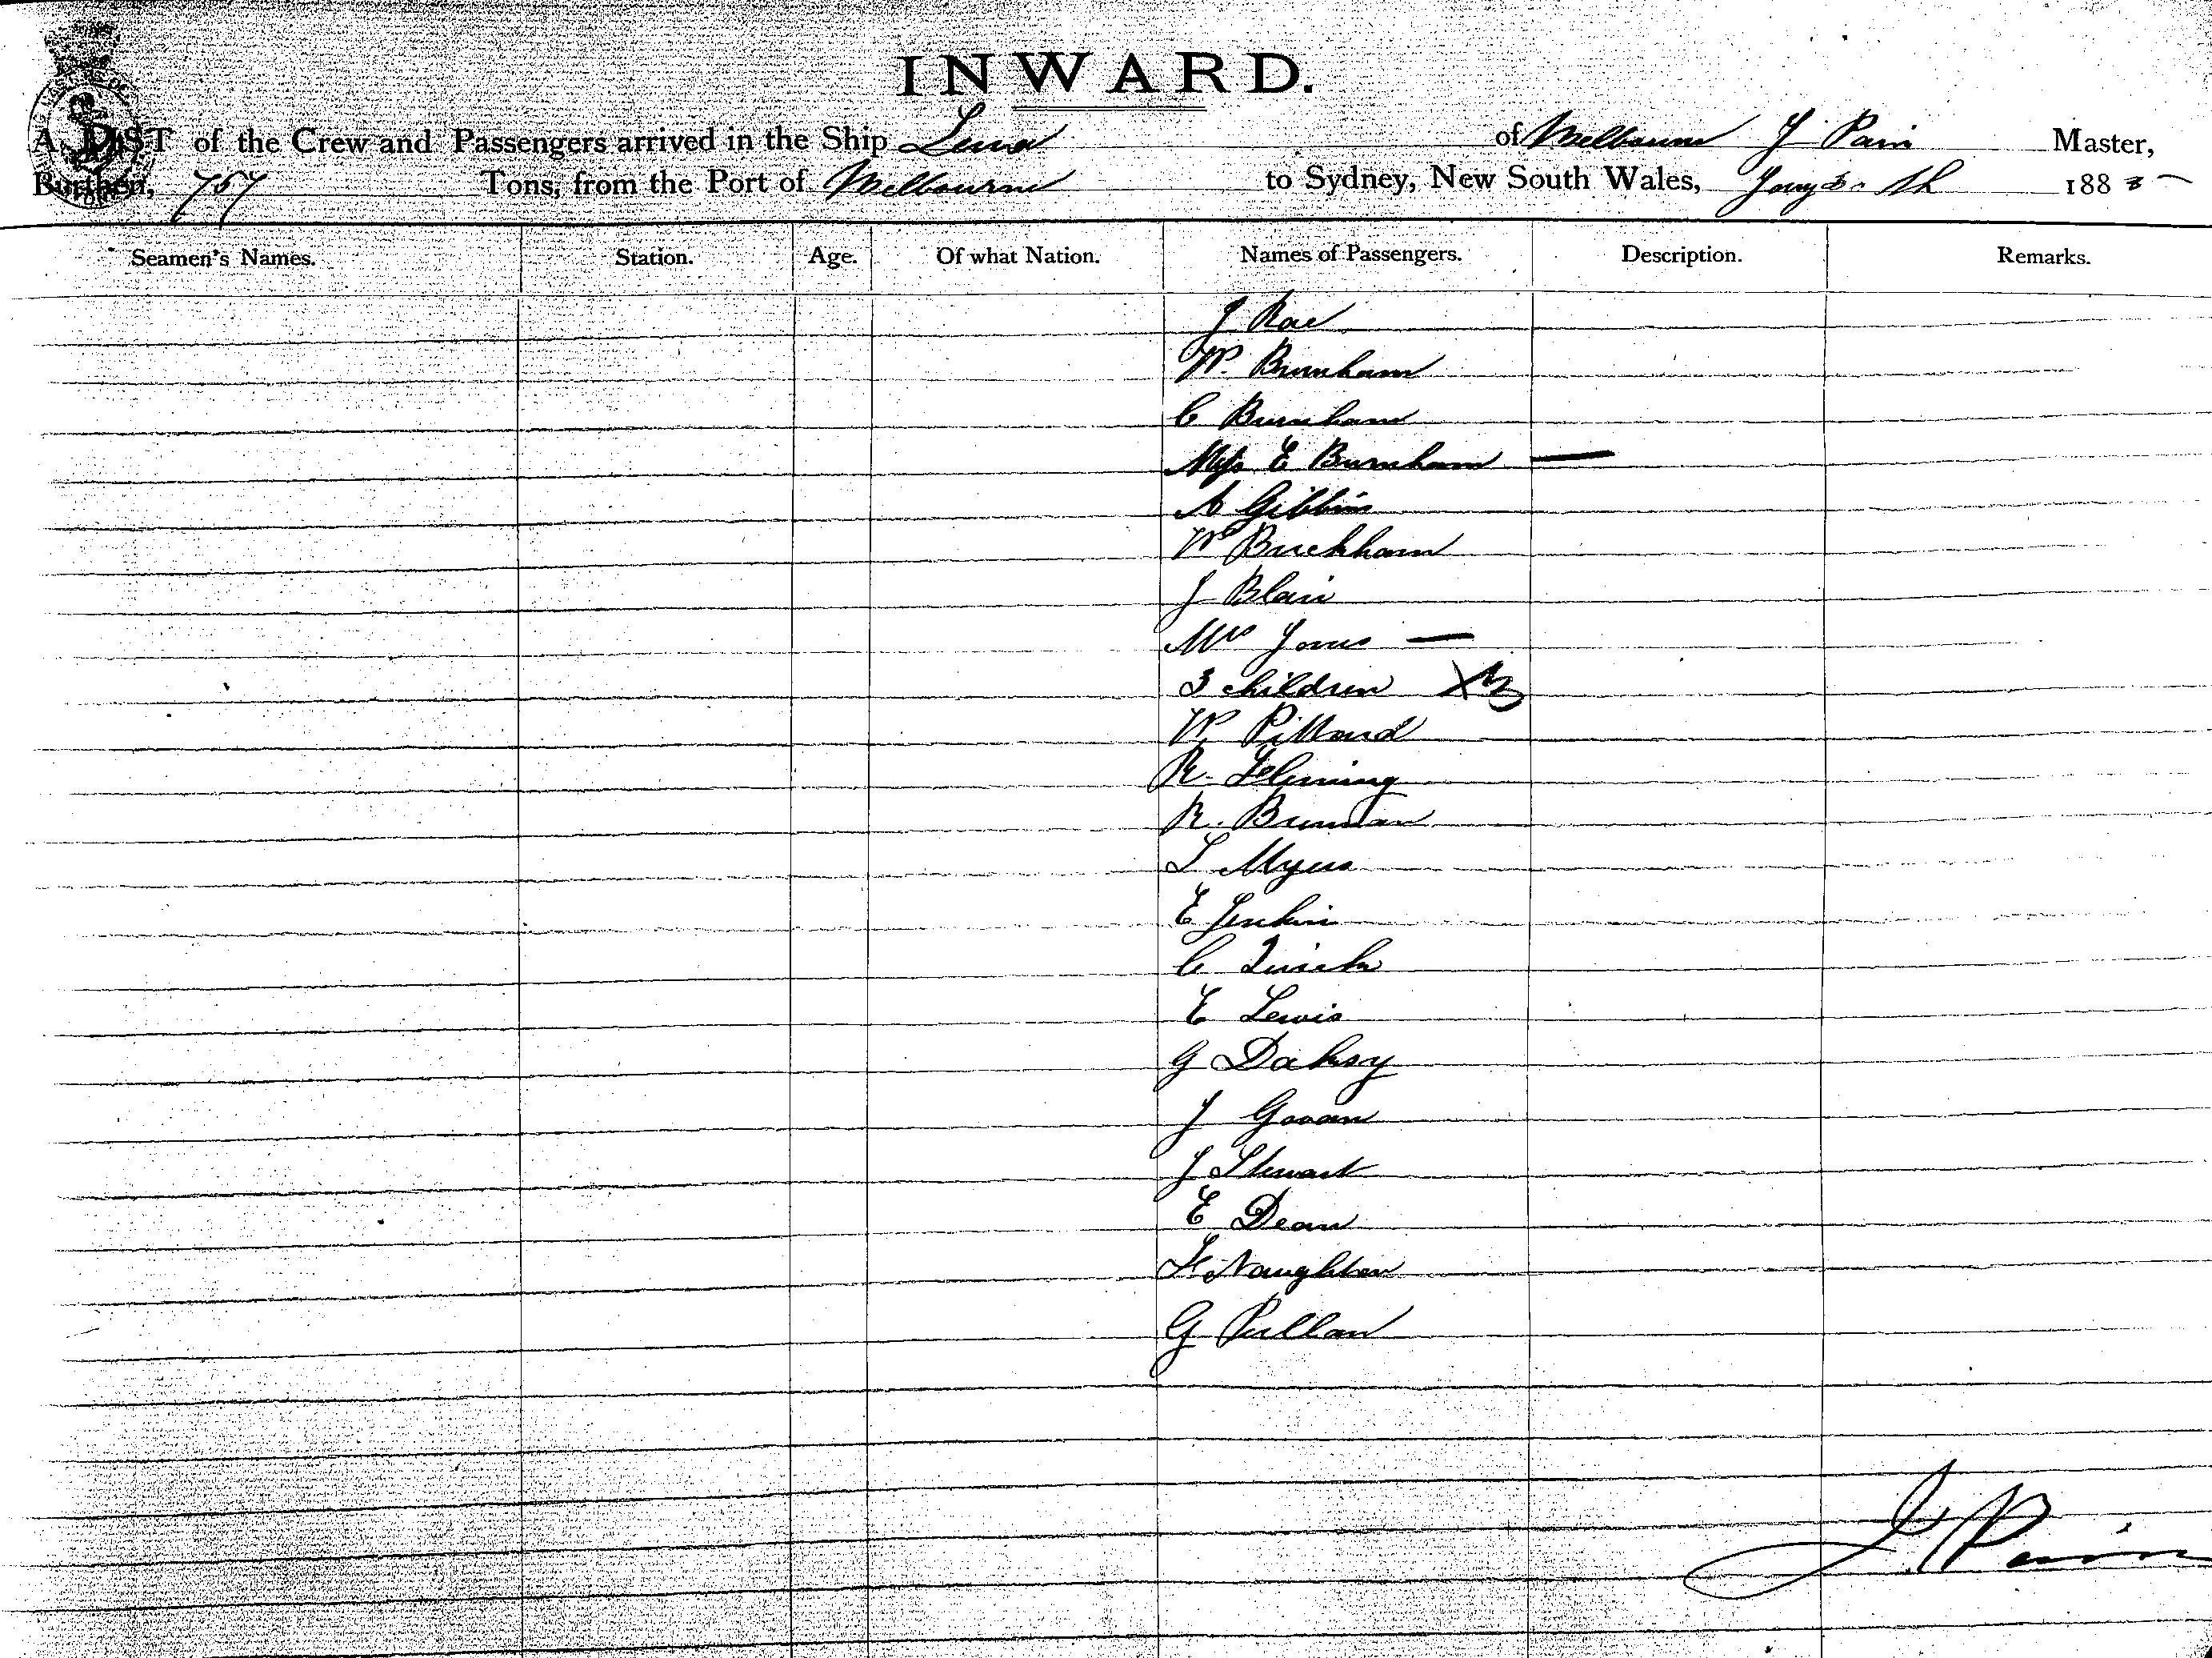 INWARD.
A LIST of the Crew and Passengers arrived in the Ship Leura of Melbourne J Pain Master,
Burthen, 757 Tons, from the Port of Melbourne to Sydney, New South Wales, 188
Seamen's Names. Station. Age. Of what Nation. Names of Passengers. Description. Remarks.
J Rae
W. Burnham
C Burnham
Miss E Burnham —
A Gibbins
W Buckham
J Blair
Mrs Jones —
3 children X3
W Pittard
R. Fleming
R. Brennan
L Myers
E Jenkin
C
E Lewis
G
J Govan
J Stewart
E Dean
F Naughton
G Pullan
J Pain